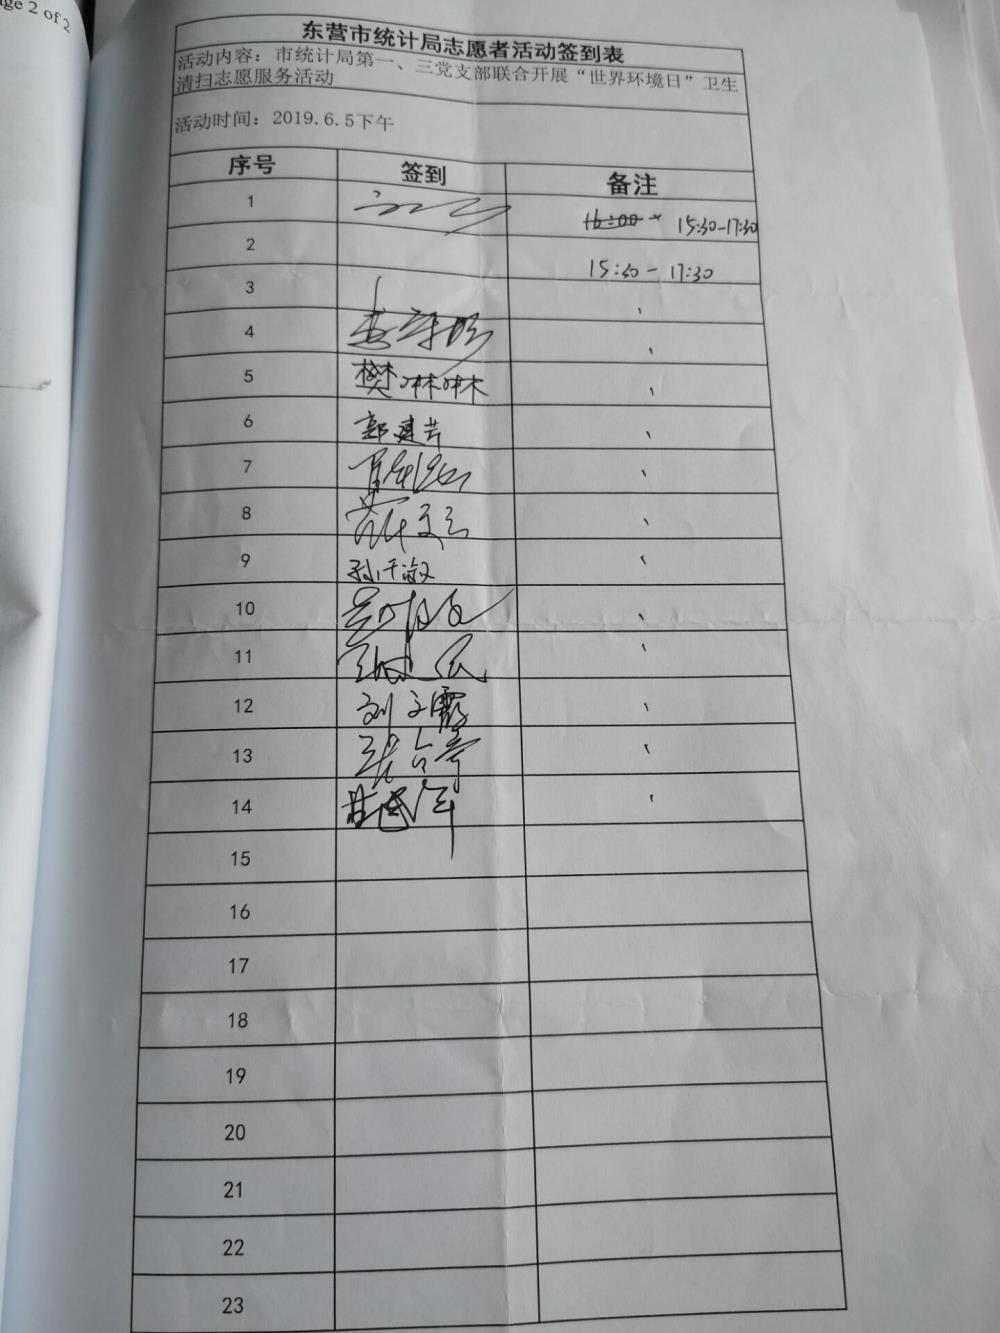 ge 2 of 2
东营市统计局志愿者活动签到表
活动内容：市统计局第一、三党支部联合开展“世界环境日”卫生
清扫志愿服务活动
活动时间：2019.6.5下午
序号 签到 备注
1 16:00 15:30-17:30
2 15:30-17:30
3
4
5 樊琳琳
6 郭建芳
7
8
9
10
11
12 刘文霞
13
14
15
16
17
18
19
20
21
22
23